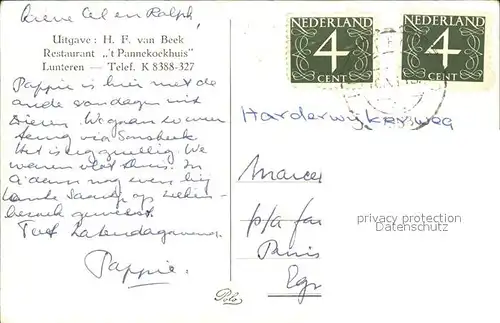 Lieve Cel en Ralph,
Uitgave: H. F. van Beek
Restaurant „'t Pannekoekhuis"
Lunteren — Telef. K 8388-327
Pappie is hier met de
oude vandaag uit
Dieren. We gaan zo weer
terug via Sonsbeek
Het is erg gezellig. We
waren vlot thuis. In
A'dam nog even bij
tante op zieken-
bezoek geweest.
Tot Zaterdagavond.
Pappie.
NEDERLAND
4
CENT
NEDERLAND
4
CENT
Harderwijkerweg
Marcel
p/a fam
privacy protection
Datenschutz
Polo